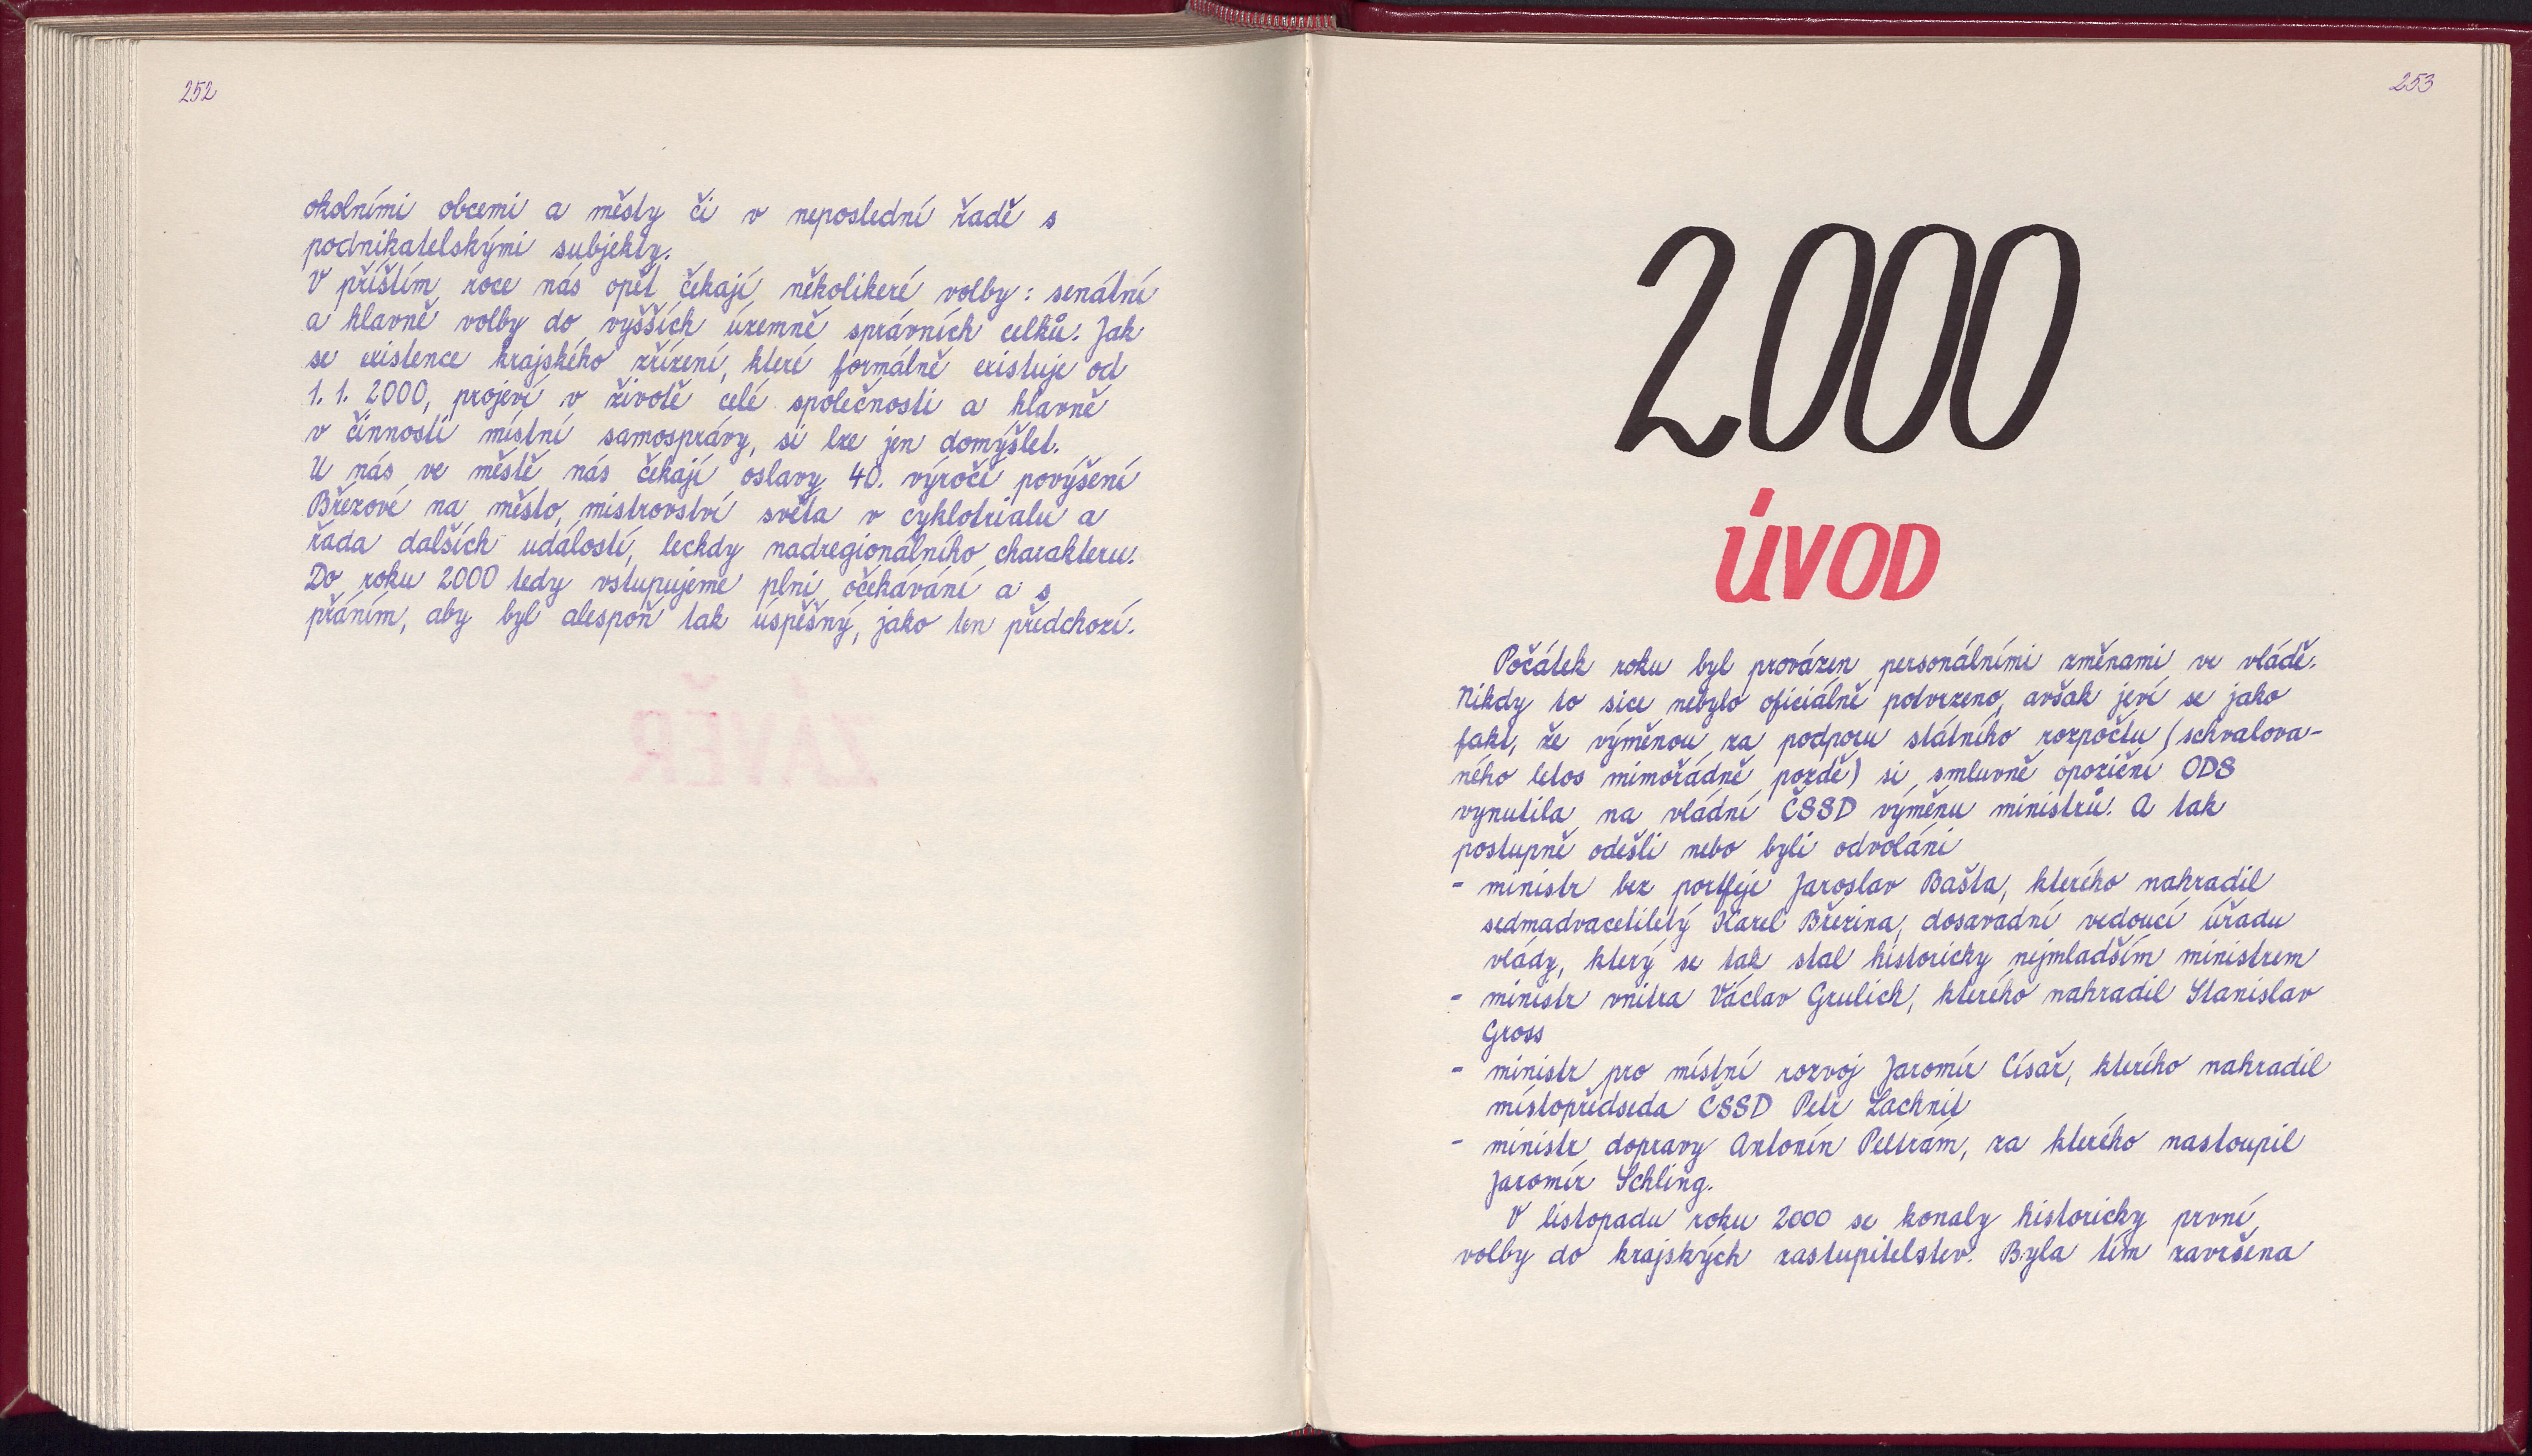 252
okolními obcemi a městy či v neposlední řadě s
podnikatelskými subjekty.
V příštím roce nás opět čekají několikeré volby: senátní
a hlavně volby do vyšších územně správních celků. Jak
se existence krajského zřízení, které formálně existuje od
1. 1. 2000, projeví v životě celé společnosti a hlavně
v činnosti místní samosprávy, si lze jen domýšlet.
U nás ve městě nás čekají oslavy 40. výročí povýšení
Březové na město, mistrovství světa v cyklotrialu a
řada dalších událostí, leckdy nadregionálního charakteru.
Do roku 2000 tedy vstupujeme plni očekávání a s
přáním, aby byl alespoň tak úspěšný, jako ten předchozí.
ZÁVĚR
253
2000
ÚVOD
Počátek roku byl provázen personálními změnami ve vládě.
Nikdy to sice nebylo oficiálně potvrzeno, avšak jeví se jako
fakt, že výměnou za podporu státního rozpočtu (schvalova-
ného letos mimořádně pozdě) si smluvně opoziční ODS
vynutila na vládní ČSSD výměnu ministrů. A tak
postupně odešli nebo byli odvoláni
- ministr bez portfeje Jaroslav Bašta, kterého nahradil
sedmadvacetiletý Karel Březina, dosavadní vedoucí úřadu
vlády, který se tak stal historicky nejmladším ministrem
- ministr vnitra Václav Grulich, kterého nahradil Stanislav
Gross
- ministr pro místní rozvoj Jaromír Císař, kterého nahradil
místopředseda ČSSD Petr Lachnit
- ministr dopravy Antonín Peltrám, za kterého nastoupil
Jaromír Schling.
V listopadu roku 2000 se konaly historicky první
volby do krajských zastupitelstev. Byla tím završena